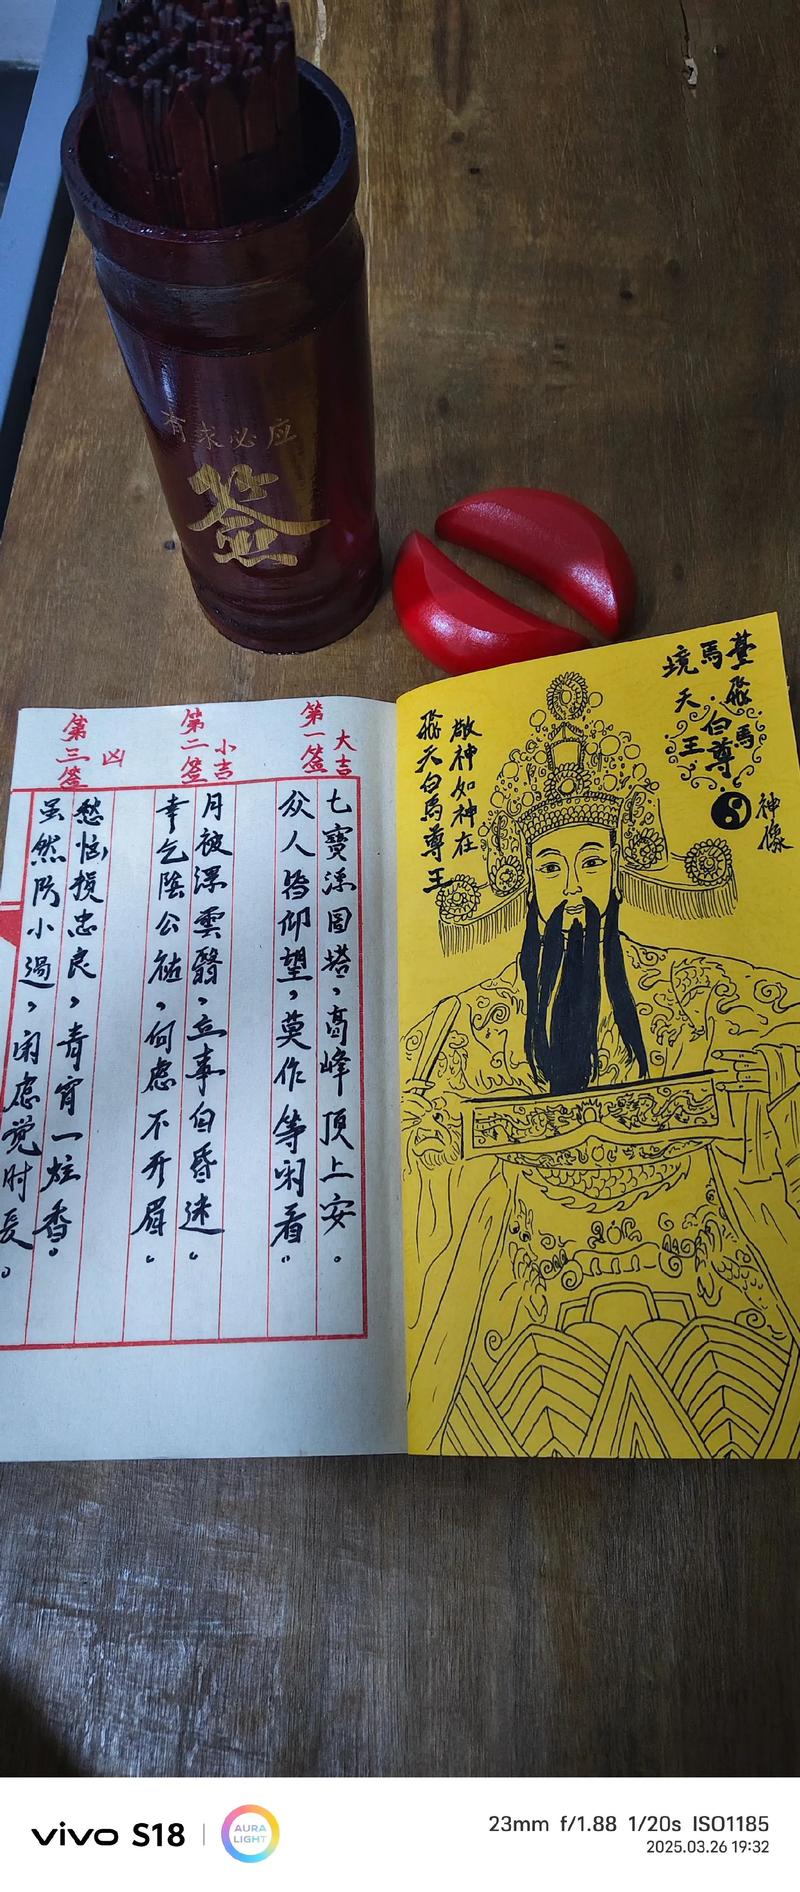 有求必应
签
臺飛馬
馬
境
飛天白馬尊王
神像
敬神如神在
飛天白馬尊王
第一签
大吉
七寳浮圖塔，高峰頂上安。
众人皆仰望，莫作等闲看。
第二签
小吉
月被深雲翳，立事自昏迷。
幸乞陰公祐，何慮不开眉。
第三签
凶
愁恼損忠良，青宵一炷香。
虽然防小過，闲慮觉时長。
vivo S18
AURA LIGHT
23mm f/1.88 1/20s ISO1185
2025.03.26 19:32